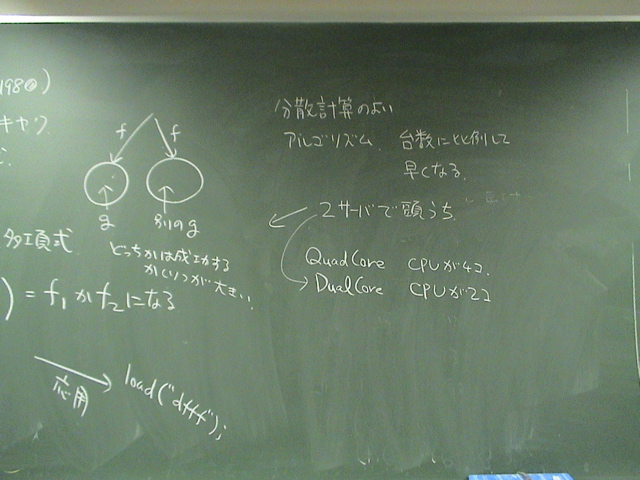 198
キャッ
f f
g 別のg
多項式
どっちかは成功する
かくりつが大きい.
) = f1かf2になる
応用
load("dfff");
分散計算のよい
アルゴリズム. 台数に比例して
早くなる.
2サーバで頭うち
QuadCore CPUが4コ.
DualCore CPUが2コ